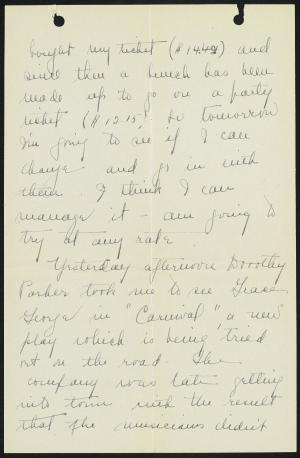 bought my ticket ($14.44) and
since then a bunch has been
made up to go on a party
ticket ($12.15) so tomorrow
I'm going to see if I can
change and go in with
them. I think I can
manage it - am going to
try at any rate
Yesterday afternoon Dorothy
Parker took me to see Grace
George in "Carnival" a new
play which is being tried
out on the road. The
company was late getting
into town with the result
that the musicians didn't